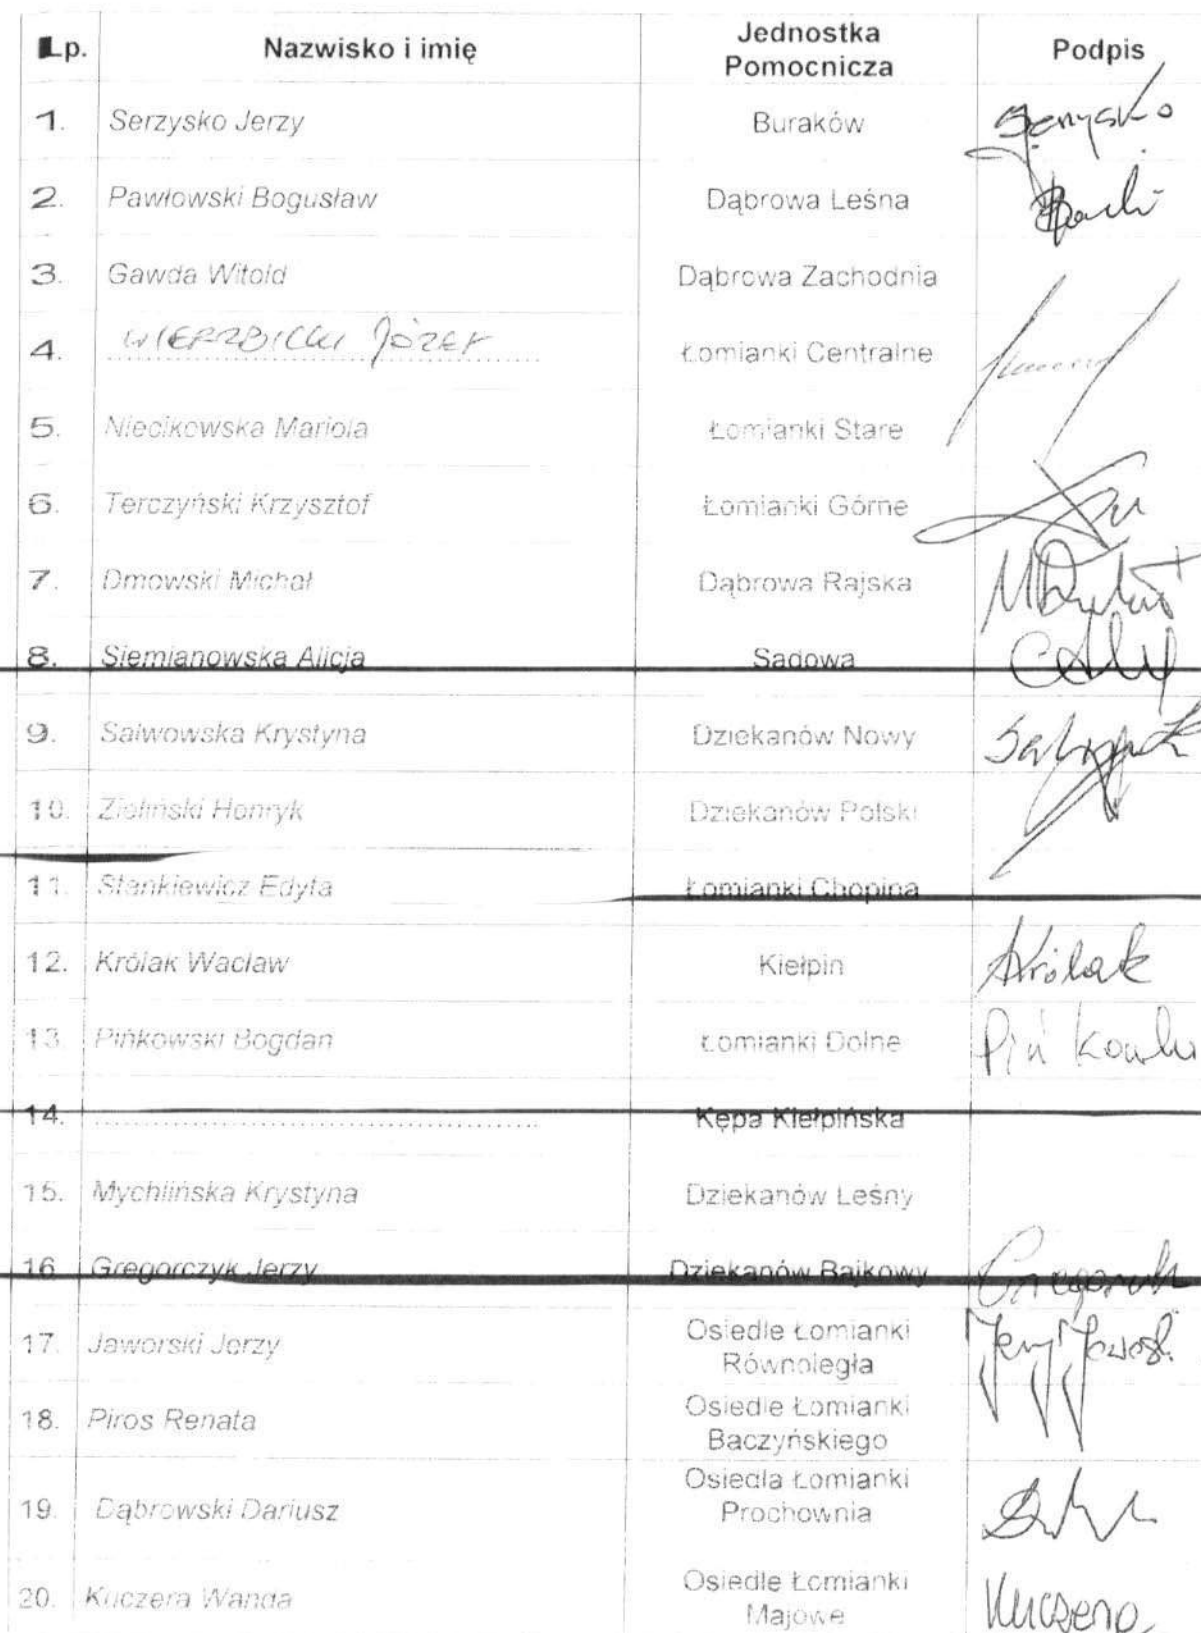 Lp. Nazwisko i imię Jednostka Pomocnicza Podpis
1. Serzysko Jerzy Buraków Serzysko
2. Pawłowski Bogusław Dąbrowa Leśna
3. Gawda Witold Dąbrowa Zachodnia
4. WIERZBICKI JÓZEF Łomianki Centralne
5. Niecikowska Mariola Łomianki Stare
6. Terczyński Krzysztof Łomianki Górne
7. Dmowski Michał Dąbrowa Rajska
8. Siemianowska Alicja Sadowa
9. Salwowska Krystyna Dziekanów Nowy
10. Zieliński Henryk Dziekanów Polski
11. Stankiewicz Edyta Łomianki Chopina
12. Królak Wacław Kiełpin Królak
13. Pińkowski Bogdan Łomianki Dolne
14. Kępa Kiełpińska
15. Mychlińska Krystyna Dziekanów Leśny
16. Gregorczyk Jerzy Dziekanów Bajkowy
17. Jaworski Jerzy Osiedle Łomianki Równoległa
18. Piros Renata Osiedle Łomianki Baczyńskiego
19. Dąbrowski Dariusz Osiedla Łomianki Prochownia
20. Kuczera Wanda Osiedle Łomianki Majowe Kuczera